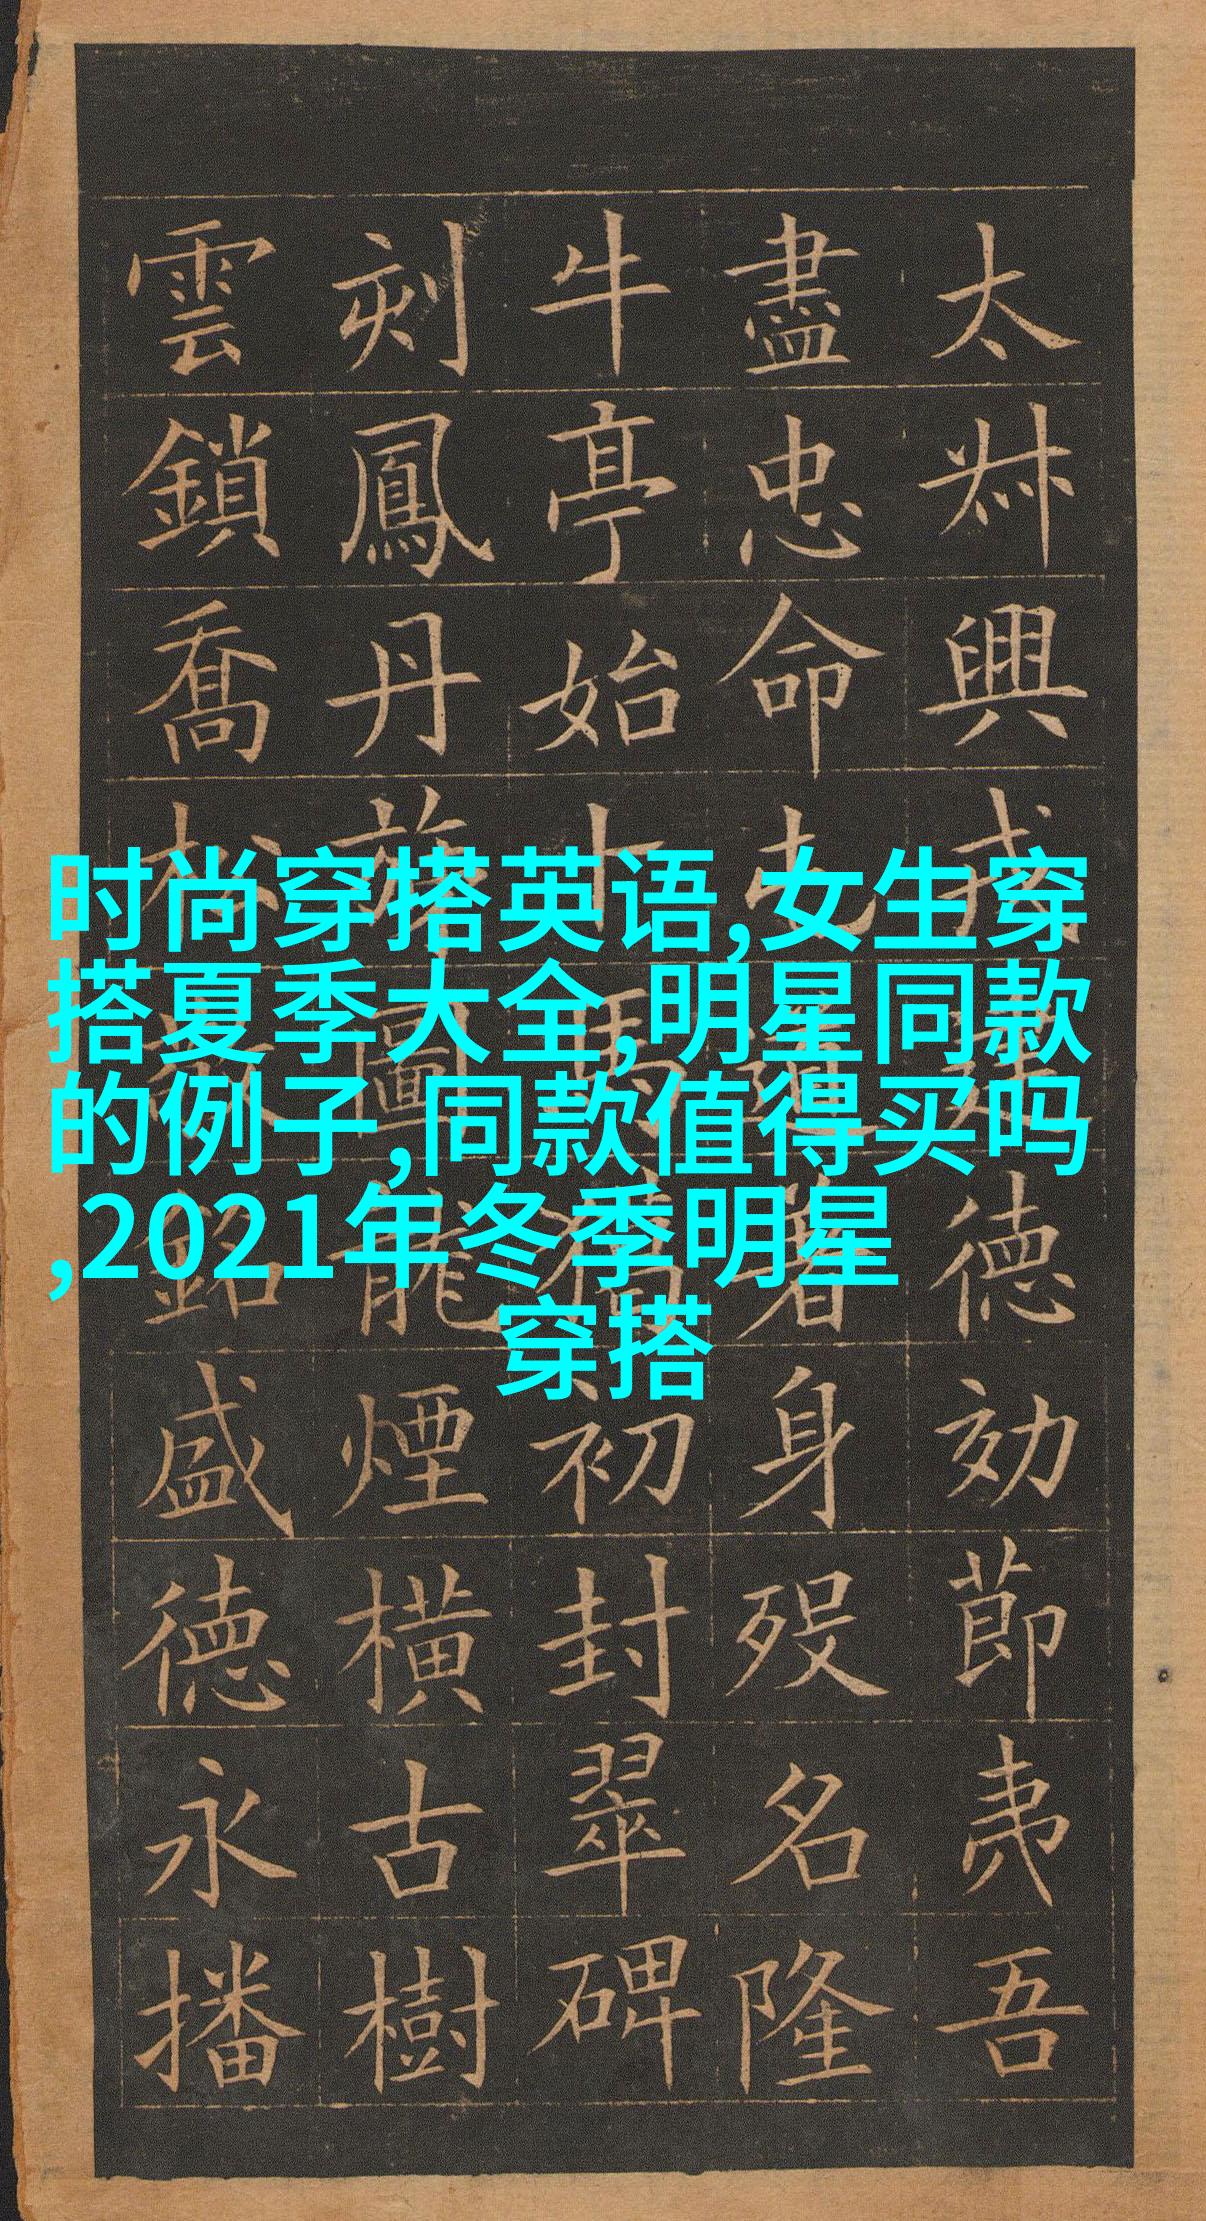 时尚穿搭英语,女生穿
搭夏季大全,明星同款
的例子,同款值得买吗
,2021年冬季明星
穿搭
太興德効節夷吾
盡忠命屯道著身歿名隆
牛亭始卜馬初封翠碑
刻鳳丹旐圖龍煙橫古樹
雲鎖喬松敢銘盛德永播